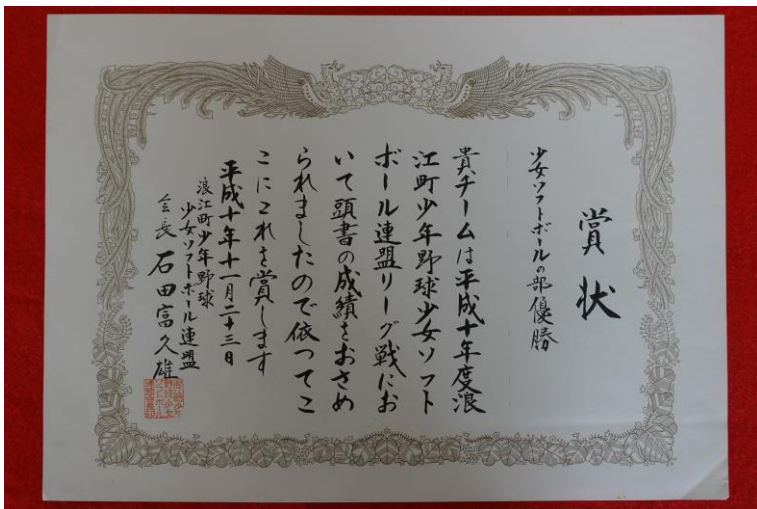 賞状
少女ソフトボールの部優勝
貴チームは平成十年度浪
江町少年野球少女ソフト
ボール連盟リーグ戦にお
いて頭書の成績をおさめ
られましたので依つてこ
こにこれを賞します
平成十年十一月二十三日
浪江町少年野球
少女ソフトボール連盟
会長 石田富久雄